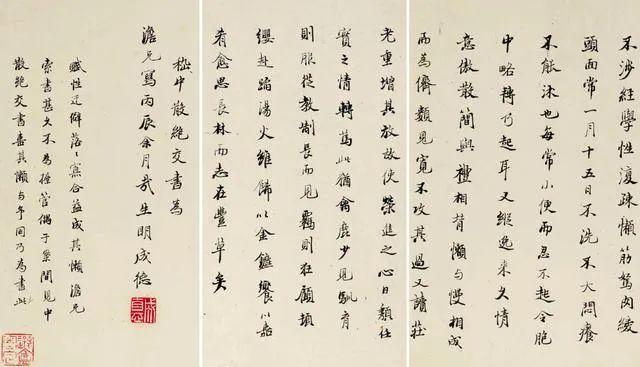 不涉經學性復疎懶筋駑肉緩
頭面常一月十五日不洗不大悶癢
不能沐也每常小便而忍不起令胞
中略轉乃起耳又縱逸來久情
意傲散簡與禮相背懶與慢相成
而為儕類見寬不攻其過又讀莊
老重增其放故使榮進之心日頹任
實之情轉篤此猶禽鹿少見馴育
則服從教制長而見羈則狂顧頓
纓赴蹈湯火雖飾以金鑣饗以嘉
肴愈思長林而志在豐草矣
嵇中散絕交書為
澹兄寫丙辰余月哉生明成德
賦性迂僻落〻寡合益成其懶澹兄
索書甚久不為握管偶于案間見中
散絕交書喜其懶與予同乃為書此